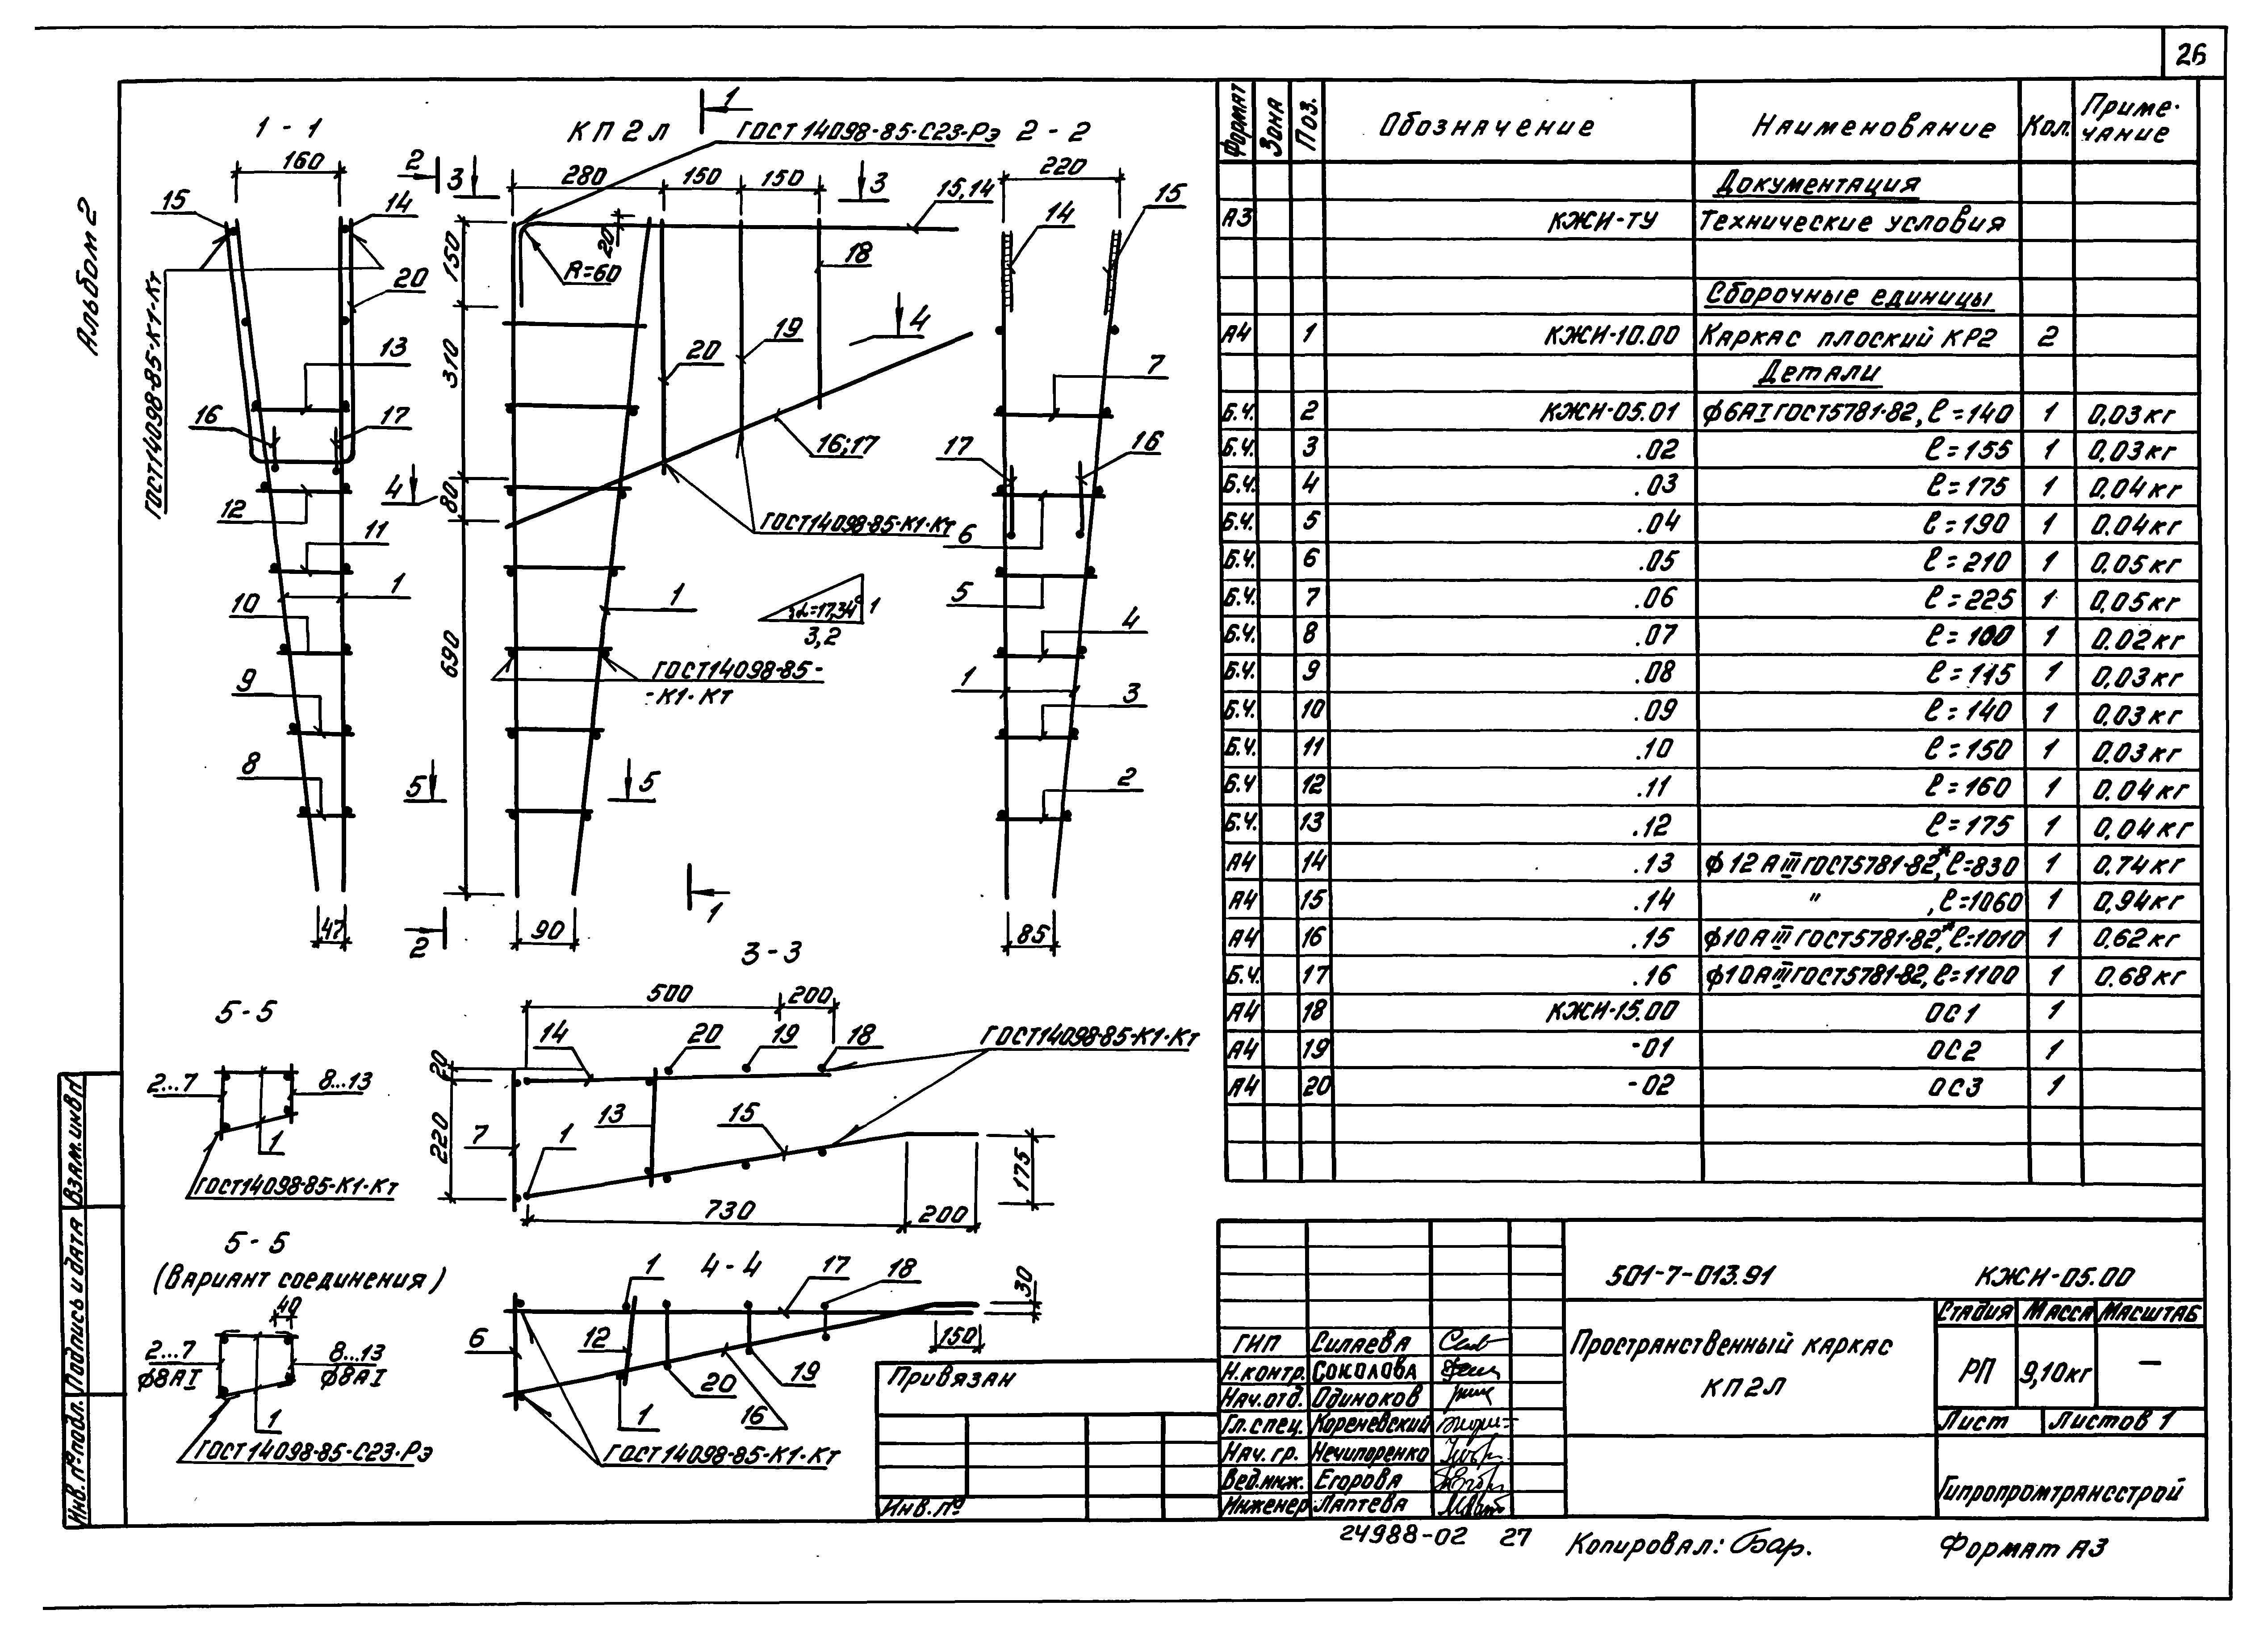 26
Альбом 2
1 - 1
160
15
14
20
13
16
17
12
11
1
10
9
8
47
ГОСТ14098-85-К1-Кт
КП2л
1
ГОСТ 14098-85-С23-Рэ
2
3
280
150
150
3
15,14
150
20
R=60
18
310
20
19
4
16;17
4
80
ГОСТ14098-85-К1-Кт
690
1
α=17,34°
1
3,2
ГОСТ14098-85-
-К1-Кт
5
5
2
90
1
2 - 2
220
14
15
7
17
16
6
5
4
1
3
2
85
5 - 5
2...7
8...13
1
ГОСТ14098-85-К1-Кт
5 - 5
(Вариант соединения)
40
2...7
ϕ8АI
8...13
ϕ8АI
1
ГОСТ14098-85-С23-Рэ
3 - 3
500
200
14
20
19
18
ГОСТ14098-85-К1-Кт
20
220
13
15
7
1
175
730
200
4 - 4
1
17
18
30
6
12
150
20
19
1
16
ГОСТ14098-85-К1-Кт
Формат
Зона
Поз.
Обозначение
Наименование
Кол.
Приме-
чание
Документация
А3 КЖИ-ТУ Технические условия
Сборочные единицы
А4 1 КЖИ-10.00 Каркас плоский КР2 2
Детали
Б.Ч. 2 КЖИ-05.01 ϕ6АI ГОСТ5781-82, ℓ=140 1 0,03кг
Б.Ч. 3 .02 ℓ=155 1 0,03кг
Б.Ч. 4 .03 ℓ=175 1 0,04кг
Б.Ч. 5 .04 ℓ=190 1 0.04кг
Б.Ч. 6 .05 ℓ=210 1 0.05кг
Б.Ч. 7 .06 ℓ=225 1 0,05кг
Б.Ч. 8 .07 ℓ=100 1 0.02кг
Б.Ч. 9 .08 ℓ=115 1 0,03кг
Б.Ч. 10 .09 ℓ=140 1 0,03кг
Б.Ч. 11 .10 ℓ=150 1 0.03кг
Б.Ч 12 .11 ℓ=160 1 0.04кг
Б.Ч. 13 .12 ℓ=175 1 0,04кг
А4 14 .13 ϕ12АIII ГОСТ5781-82*, ℓ=830 1 0.74кг
А4 15 .14 " , ℓ=1060 1 0,94кг
А4 16 .15 ϕ10АIII ГОСТ5781-82*, ℓ=1010 1 0.62кг
Б.Ч. 17 .16 ϕ10АIII ГОСТ5781-82, ℓ=1100 1 0.68кг
А4 18 КЖИ-15.00 ОС1 1
А4 19 -01 ОС2 1
А4 20 -02 ОС3 1
501-7-013.91 КЖИ-05.00
Пространственный каркас
КП2Л
Стадия Масса Масштаб
РП 9,10кг —
Лист Листов 1
Гипропромтрансстрой
ГИП Силаева
Н.контр. Соколова
Нач.отд. Одиноков
Гл.спец. Кореневский
Нач. гр. Нечипоренко
Вед.инж. Егорова
Инженер Лаптева
Привязан
Инв.№
Взам.инв№
Подпись и дата
Инв.№подл.
24988-02 27
Копировал:
Формат А3